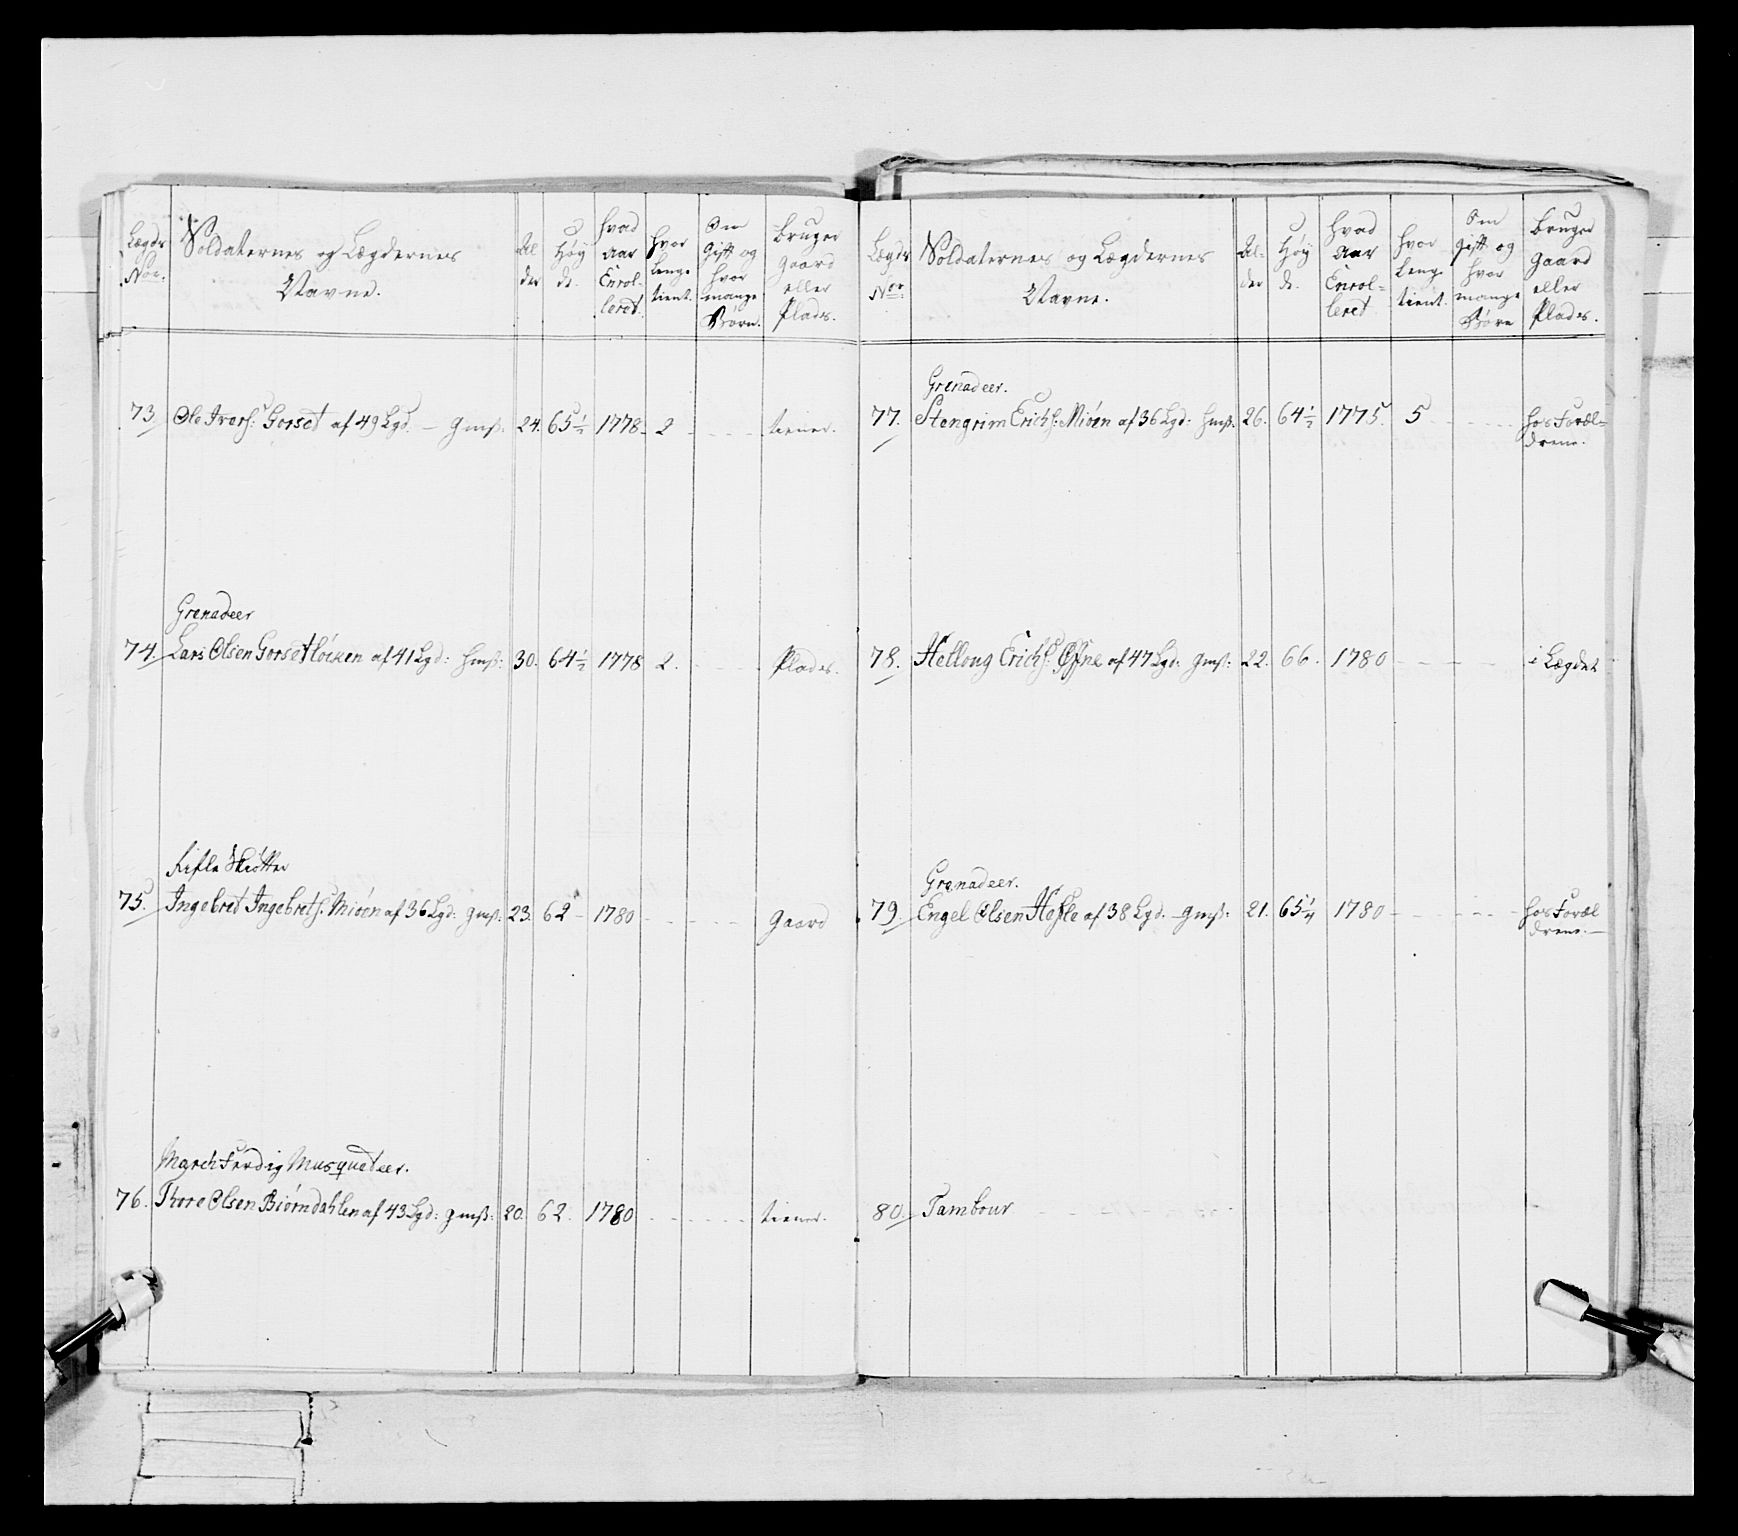 Lægds Nor: Soldaternes og Lægdernes Navne. Al der Høy de. hvad aar Enrol- leret hvor lenge tient. Om Gift og hvor mange Børn. bruger gaard eller Plads.
73 Ole Ivers: Gorset af 49 Lgd. — gmß: 24. 65½ 1778. 2 tiener.
Grenadeer
74. Lars Olsen Gorsetløcken af 41 Lgd: hmß: 30. 64½ 1778 2. Plads.
Rifle Skiøtter
75. Ingebret Ingebrets: Mioen af 36 Lgd: gmß: 23. 62 - 1780 gaard
March Færdig Musqueteer.
76. Thore Olsen Biørndahlen af 43 Lgd: gmß: 20. 62. 1780 tiener.
Lægds Nor: Soldaternes og Lægdernes Navne. Al- der Høy de. hvad aar Enrol- leret hvor lenge tient. Om Gift og hvor mange Børn bruger gaard eller Plads.
Grenadeer.
77. Stengrim Erichs: Mioen af 36 Lgd: hmß. 26. 64½ 1775. 5 hos Foræl-
drene.
78. Helloug Erichs: af 47 Lgd: gmß: 22. 66. 1780 i Lægdet
Grenadeer.
79. Engel Olsen Hesle af 38 Lgd. — gmß: 21. 65¼ 1780 hos Foræl
drene. —
80. Tambour